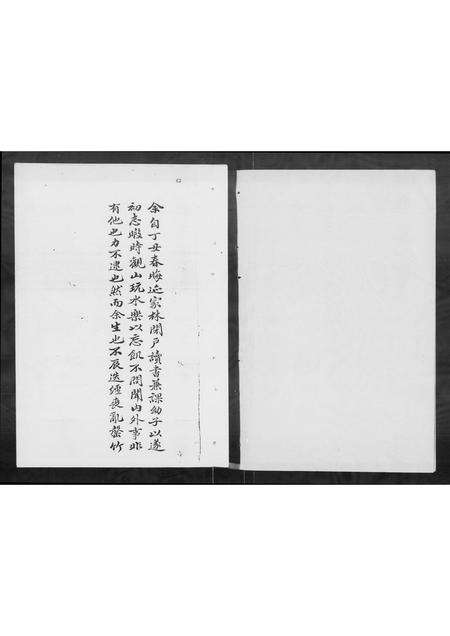 余自丁丑春晦迹家林閉户讀書兼課幼子以遂
初志暇時觀山玩水樂以忘飢不問閫內外事非
有他也力不逮也然而余生也不辰迭經喪亂罄竹